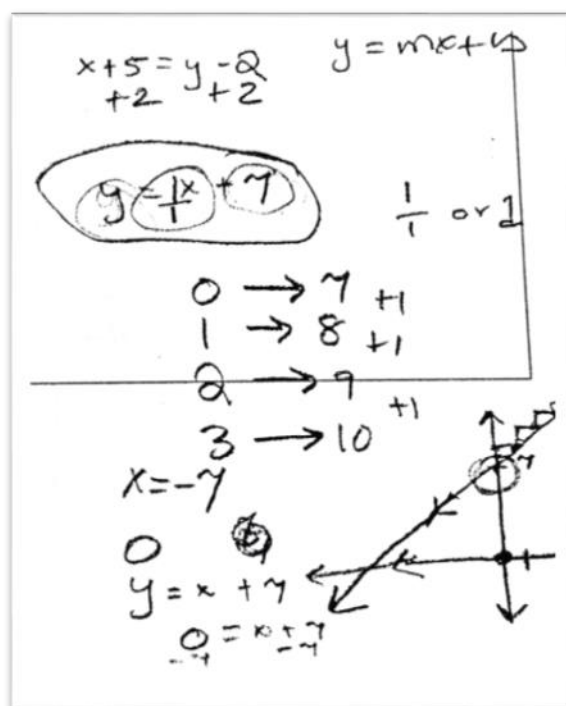 x+5=y-2
+2 +2
y=mx+b
y=1/1x+7
1/1 or 1
0 → 7 +1
1 → 8 +1
2 → 9 +1
3 → 10
7
x=-7
0
y=x+7
0=x+7
-7 -7